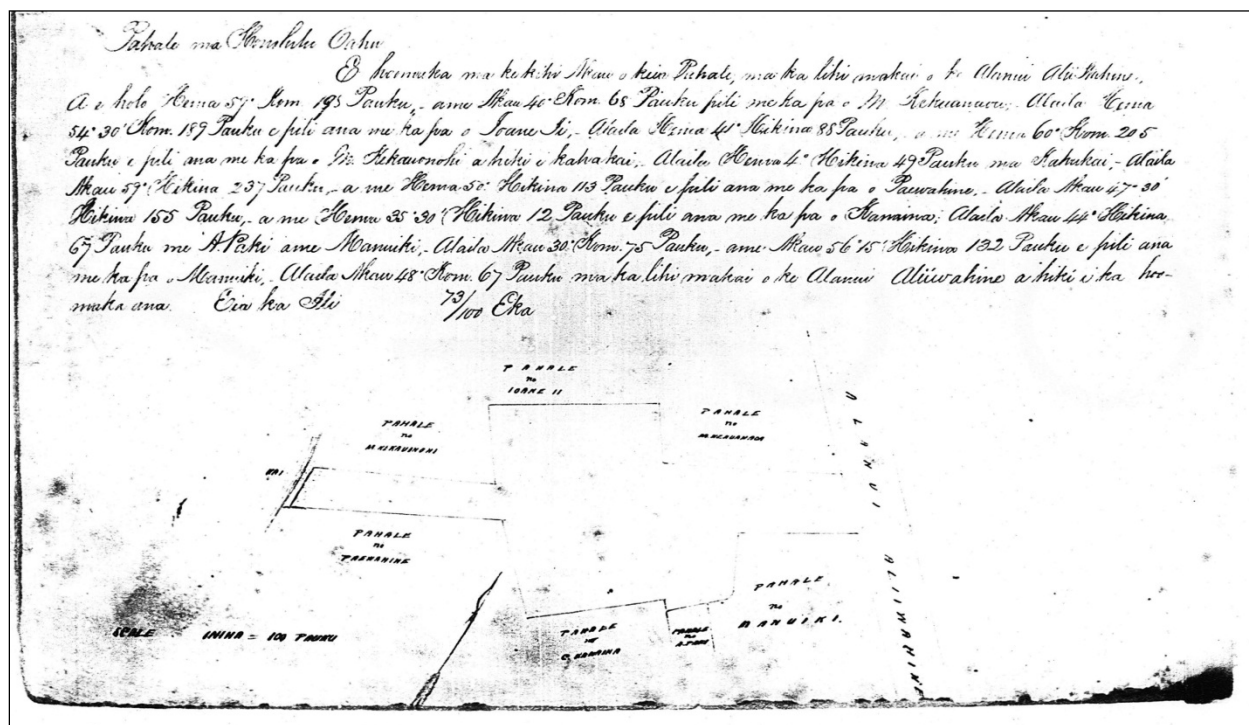 Pahale ma Honolulu Oahu
E hoomaka ma ke kihi Akau o keia Pahale, ma ka lihi makai o ke Alanui Alii Wahine,
A e holo Hema 57° Kom. 195 Pauku, - a me Akau 40° Kom. 68 Pauku pili me ka pa o M. Kekuanaoa; - Alaila Hema
54° 30' Kom. 189 Pauku e pili ana me ka pa o Ioane Ii, - Alaila Hema 41° Hikina 85 Pauku, - a me Hema 60° Kom. 205
Pauku e pili ana me ka pa o M. Kekauonohi a hiki i kahakai. Alaila Hema 4° Hikina 49 Pauku ma Kahakai, - Alaila
Akau 59° Hikina 237 Pauku, - a me Hema 50° Hikina 113 Pauku e pili ana me ka pa o Paewahine. - Alaila Akau 47° 30'
Hikina 155 Pauku, - a me Hema 35° 30' Hikina 12 Pauku e pili ana me ka pa o Kanaina; Alaila Akau 44° Hikina
67 Pauku me A. Paki a me Manuiki, - Alaila Akau 30° Kom. 75 Pauku, - a me Akau 56° 15' Hikina 132 Pauku e pili ana
me ka pa o Manuiki, - Alaila Akau 48° Kom. 67 Pauku ma ka lihi makai o ke Alanui Aliiwahine a hiki i ka hoo-
maka ana. Eia ka Ili 73/100 Eka
PAHALE
no
IOANE II
PAHALE
no
M. KEKAUONOHI
PAHALE
no
M. KEKUANAOA
KAI
PAHALE
no
PAEWAHINE
ALANUI ALIIWAHINE
PAHALE
no
MANUIKI.
PAHALE
no
A. PAKI
PAHALE
no
C. KANAINA
SCALE INIHA = 100 PAUKU